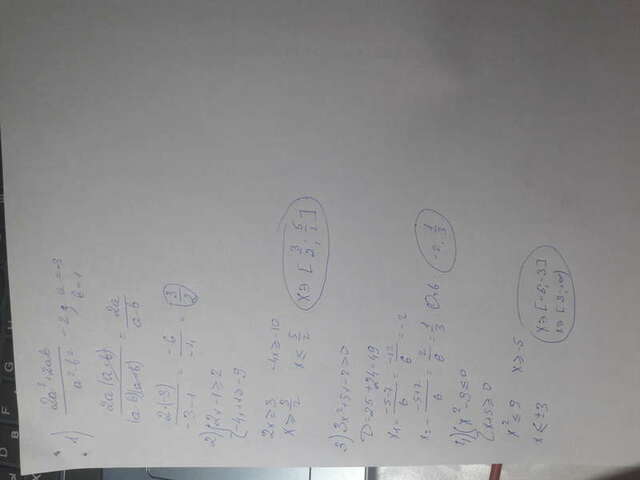 1) (2a²+2ab)/(a²-b²) a=-3
b=1
2a(a+b)/((a-b)(a+b)) = 2a/(a-b)
2·(-3)/(-3-1) = -6/-4 = 3/2
2) {2x-1≥2
{-4x+1≥-9
2x≥3 -4x≥-10
x≥3/2 x≤5/2 x∋[3/2;
3) 3x²+5x-2≥0
D=25+24=49
x₁=(-5-7)/6=-12/6=-2
x₂=(-5+7)/6=2/6=1/3 Отв -2; 1/3
4) {x²-9≤0
{x+5≥0
x²≤9 x≥-5
x≤±3 x∋[-5;-3]